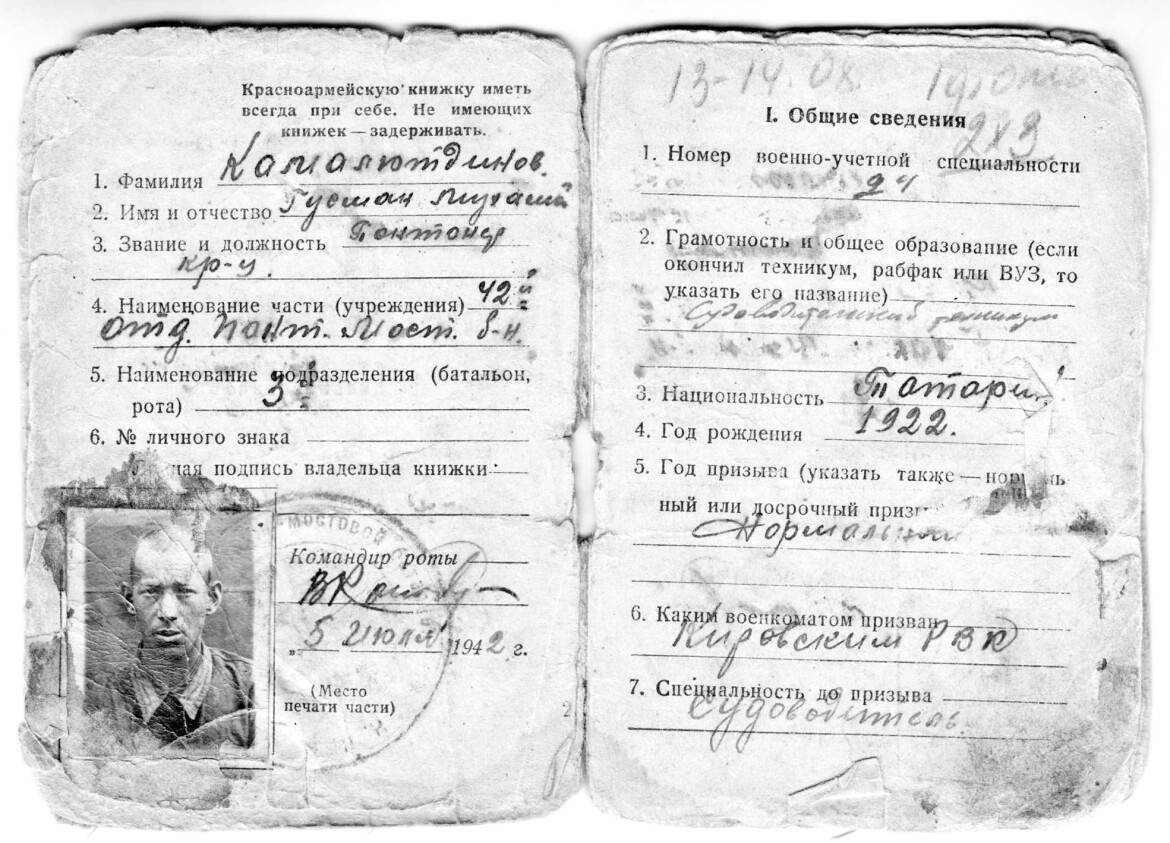 Красноармейскую книжку иметь
всегда при себе. Не имеющих
книжек — задерживать.
1. Фамилия Камалютдинов.
2. Имя и отчество Гусман
3. Звание и должность Понтонер
кр-ц.
4. Наименование части (учреждения) 42й
отд. Понт. Мост. б-н.
5. Наименование подразделения (батальон,
рота) 3
6. № личного знака
подпись владельца книжки
МОСТОВОЙ
Командир роты
„5 июля 1942 г.
(Место
печати части)
2
13-14.08.
2х3
I. Общие сведения
1. Номер военно-учетной специальности
2. Грамотность и общее образование (если
окончил техникум, рабфак или ВУЗ, то
указать его название)
Судоводительский техникум
3. Национальность Татарин
4. Год рождения 1922.
5. Год призыва (указать также — нормаль
ный или досрочный призыв
Нормальный
6. Каким военкоматом призван
Кировским РВК
7. Специальность до призыва
Судоводитель.